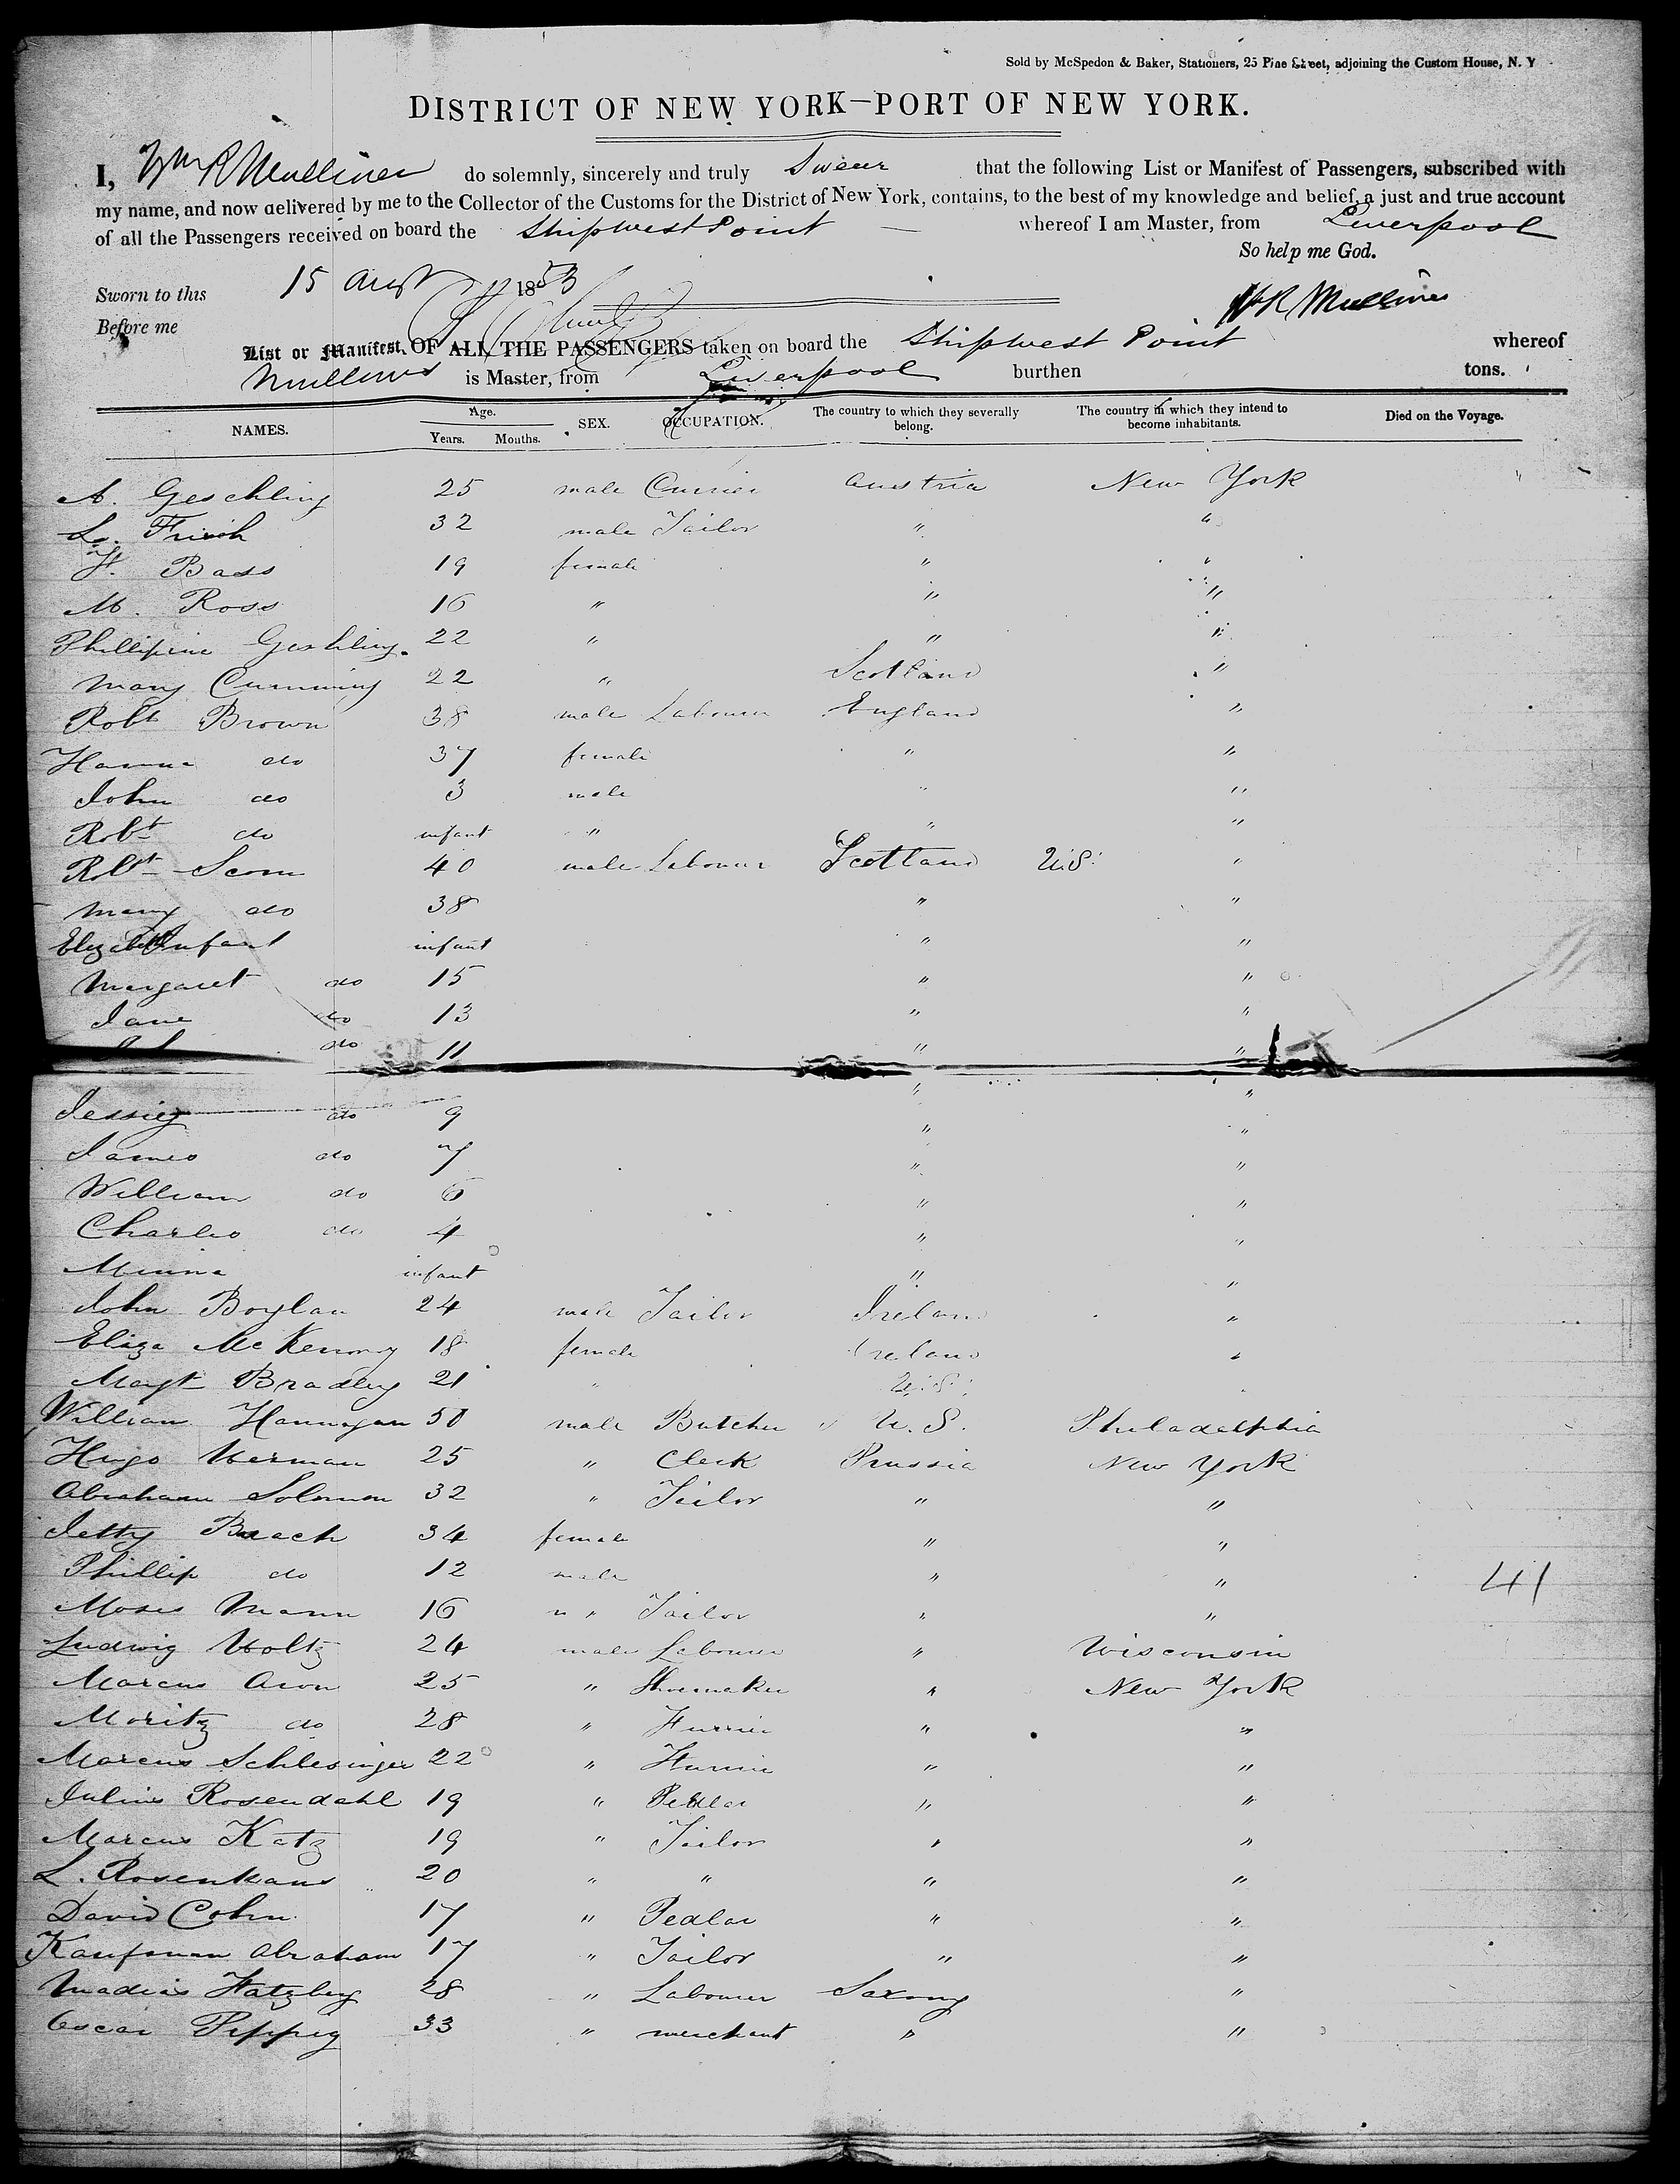 Sold by McSpedon & Baker, Stationers, 25 Pine Street, adjoining the Custom House, N. Y
DISTRICT OF NEW YORK—PORT OF NEW YORK.
I, Wm R Mulliner do solemnly, sincerely and truly Swear that the following List or Manifest of Passengers, subscribed with
my name, and now delivered by me to the Collector of the Customs for the District of New York, contains, to the best of my knowledge and belief, a just and true account
of all the Passengers received on board the Ship West Point — whereof I am Master, from Liverpool
So help me God.
Sworn to this 15 Augt 1853
Before me
Wm R Mulliner
List or Manifest OF ALL THE PASSENGERS taken on board the Ship West Point whereof
Mulliner is Master, from Liverpool burthen tons.
NAMES. Age. Years. Months. SEX. OCCUPATION. The country to which they severally belong. The country in which they intend to become inhabitants. Died on the Voyage.
A. Geschling 25 male Currier Austria New York
L. Frisch 32 male Tailor " "
F. Bass 19 female " "
M. Ross 16 " " "
Phillipine Geshling 22 " " "
Mary Cumming 22 " Scotland "
Robt Brown 38 male Labourer England "
Hanna do 37 female " "
John do 3 male " "
Robt do infant " " "
Robt Scorn 40 male Labourer Scotland U.S. "
Mary do 38 " "
Elizabeth Infant infant " "
Margaret do 15 " "
Jane do 13 " "
do 11 " "
Jessie do 9 " "
James do 7 " "
William do 6 " "
Charles do 4 " "
Minna infant " "
John Boylan 24 male Tailor Ireland "
Eliza McKenny 18 female Ireland "
Margt Bradley 21 " U.S. "
William Hannagan 50 male Butcher " U.S. Philadelphia
Hugo Herman 25 " Clerk Prussia New York
Abraham Solomon 32 " Tailor " "
Jetty Baach 34 female " "
Phillip do 12 male " "
41
Moses Mann 16 " " Tailor " "
Ludwig Holtz 24 male Labourer " Wisconsin
Marcus Aron 25 " Shoemaker " New York
Moritz do 28 " Furrier " "
Marcus Schlesinger 22 " Furrier " "
Julius Rosendahl 19 " Pedlar " "
Marcus Katz 19 " Tailor " "
L. Rosenkans 20 " " " "
David Cohn 17 " Pedlar " "
Kaufman Abraham 17 " Tailor " "
Madias Hatzberg 28 " Labourer Saxony "
Oscar Peppig 33 " merchant " "